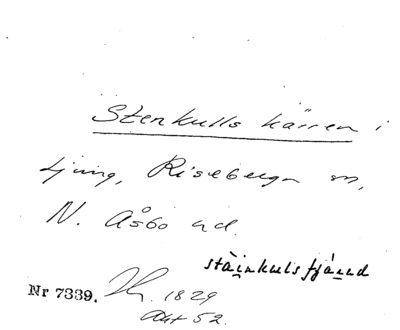 Stenkulls kärren i
Ljung, Riseberga sn,
N. Åsbo hd.
stäinkulsfjärrd
Nr 7339. 1829
Akt 52.